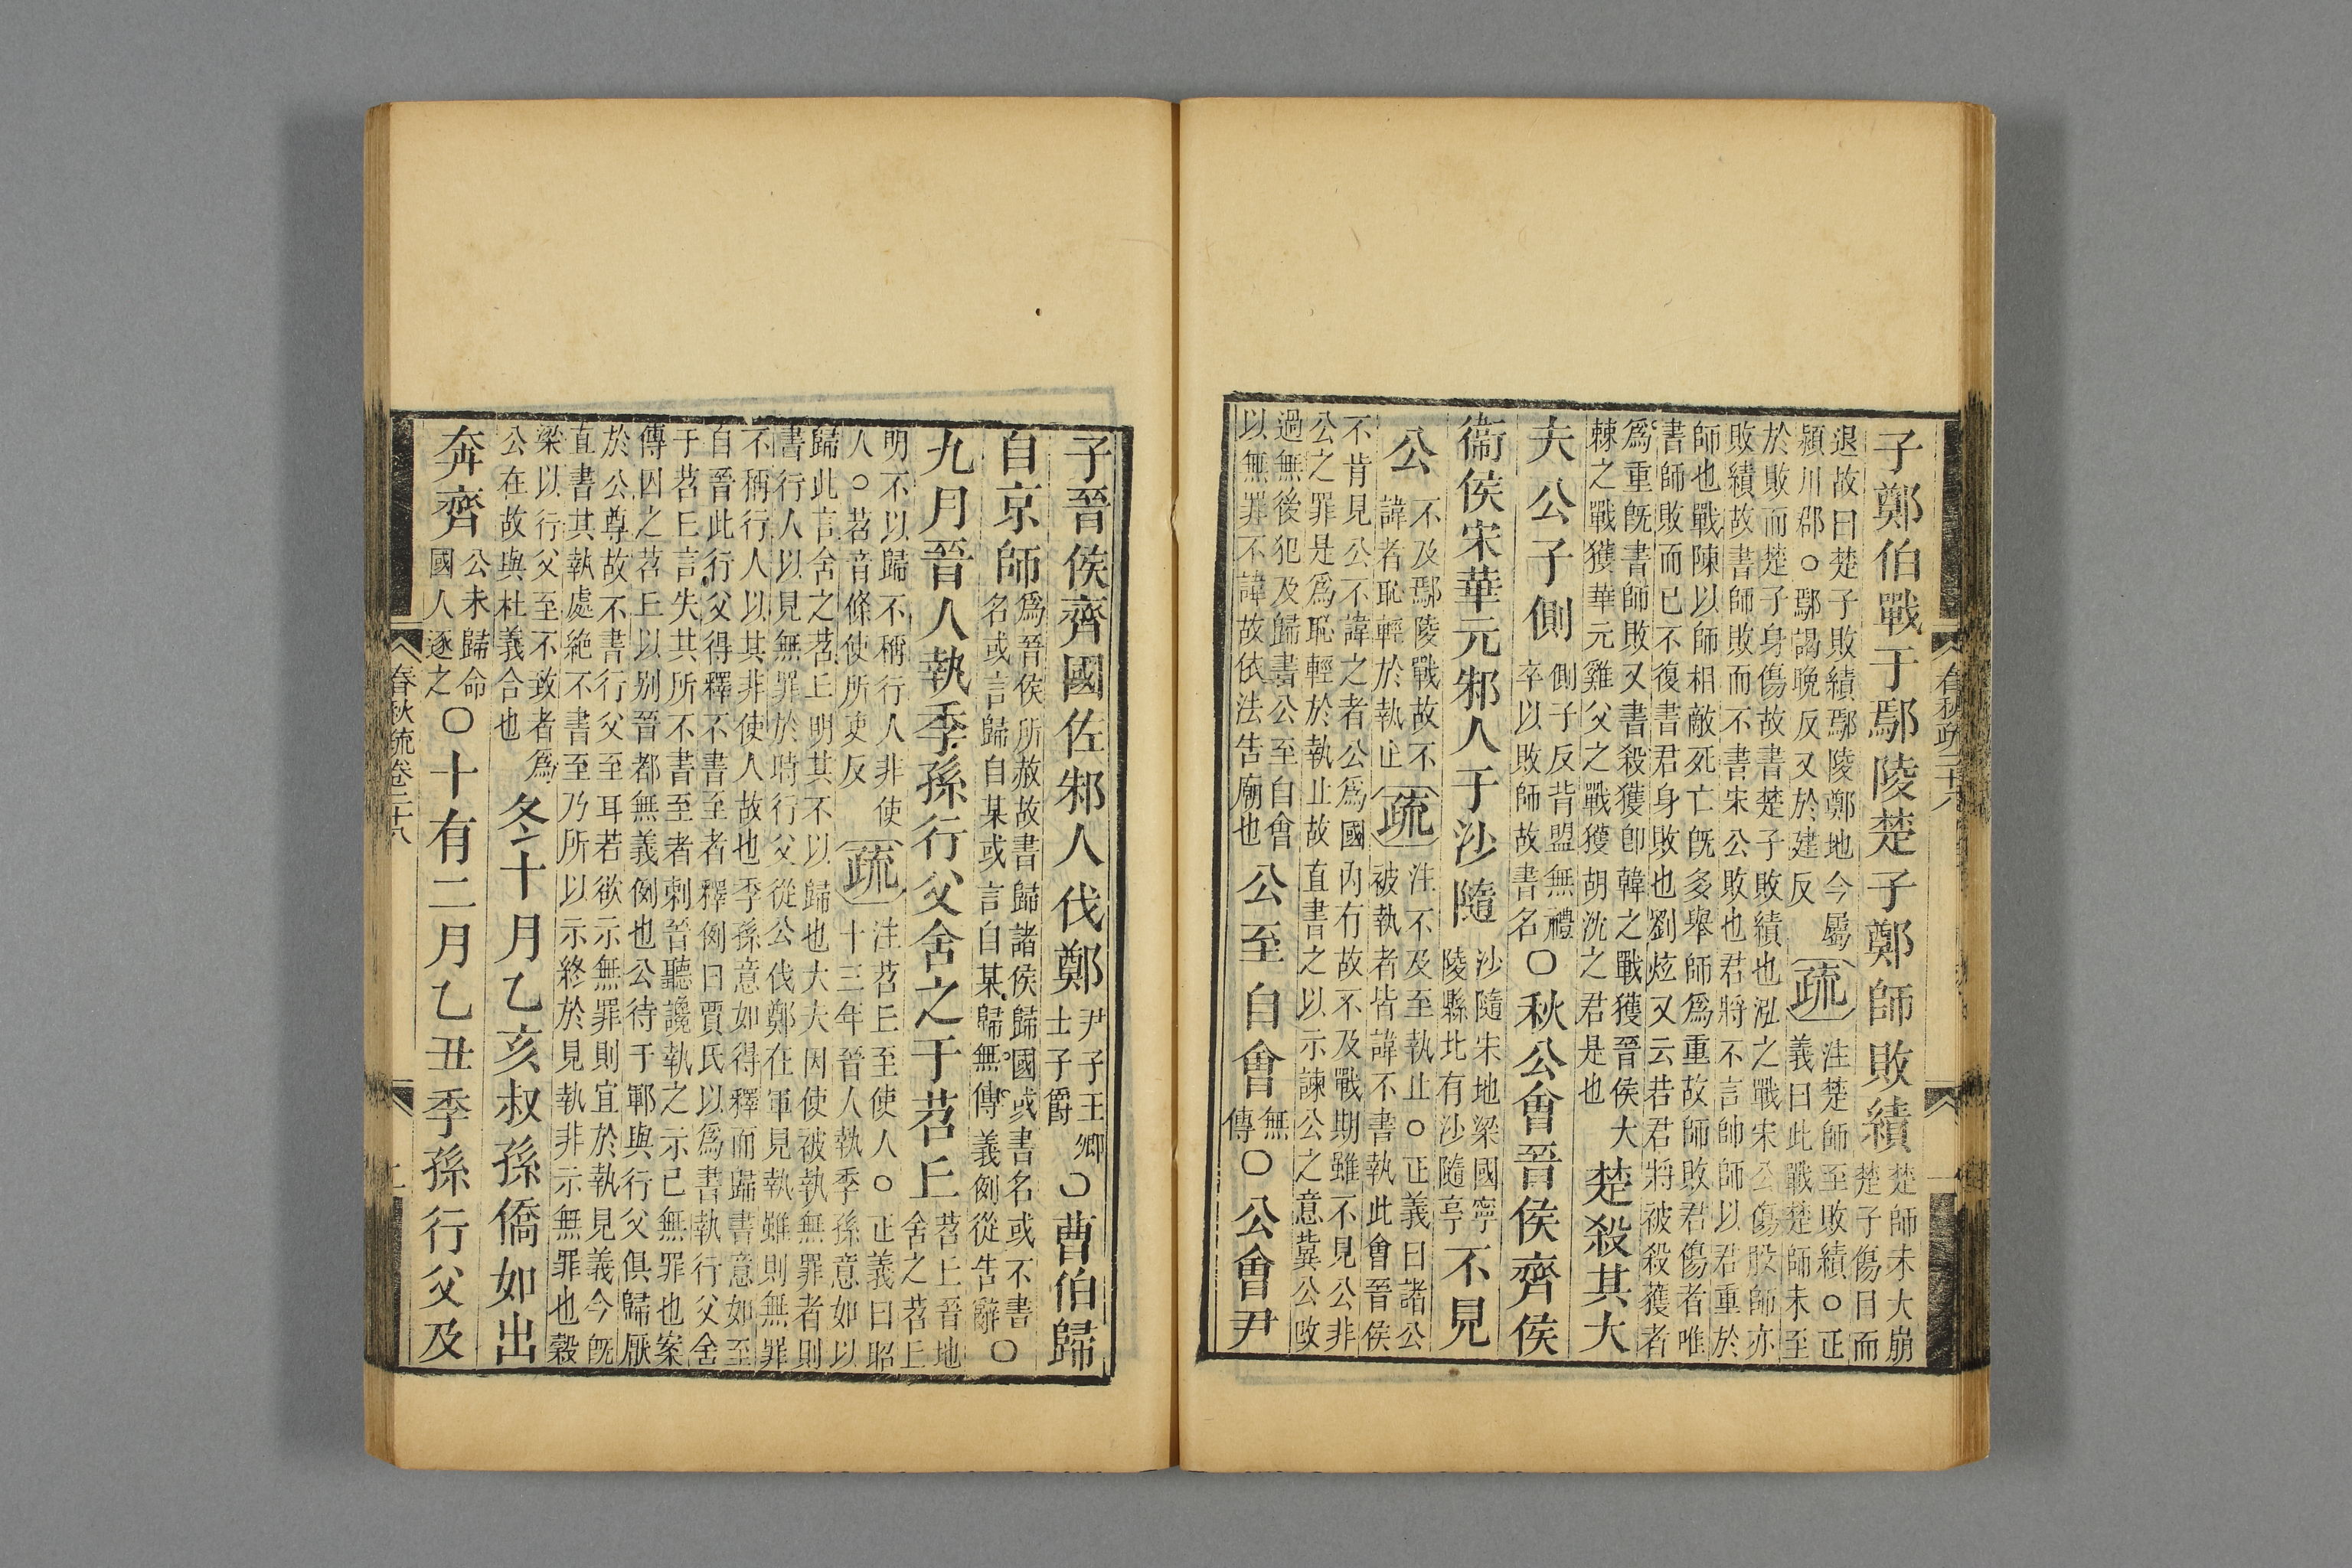 春秋疏卷二十八
子鄭伯戰于鄢陵楚子鄭師敗績
楚師未大崩
楚子傷目而
退故曰楚子敗績鄢陵鄭地今屬
潁川郡○鄢謁晚反又於建反
疏
注楚師至敗績○正
義曰此戰楚師未至
於敗而楚子身傷故書楚子敗績也泓之戰宋公傷股師亦
敗績故書師敗而不書宋公敗也君將不言帥師以君重於
師也戰陳以師相敵死亡旣多舉師爲重故師敗君傷者唯
書師敗而已不復書君身敗也劉炫又云若君將被殺獲者
爲重旣書師敗又書殺獲卽韓之戰獲晉侯大
棘之戰獲華元雞父之戰獲胡沈之君是也
楚殺其大
夫公子側
側子反背盟無禮
卒以敗師故書名
○秋公會晉侯齊侯
衞侯宋華元邾人于沙隨
沙隨宋地梁國寧
陵縣北有沙隨亭
不見
公
不及鄢陵戰故不
諱者恥輕於執止
疏
注不及至執止○正義曰諸公
被執者皆諱不書執此會晉侯
不肯見公不諱之者公爲國内有故不及戰期雖不見公非
公之罪是爲恥輕於執止故直書之以示諫公之意冀公改
過無後犯及歸書公至自會
以無罪不諱故依法告廟也
公至自會
無
傳
○公會尹
子晉侯齊國佐邾人伐鄭
尹子王卿
士子爵
○曹伯歸
自京師
爲晉侯所赦故書歸諸侯歸國或書名或不書
名或言歸自某或言自某歸無傳義例從告辭
○
九月晉人執季孫行父舍之于苕丘
苕丘晉地
舍之苕丘
明不以歸不稱行人非使
人○苕音條使所吏反
疏
注苕丘至使人○正義曰昭
十三年晉人執季孫意如以
歸此言舍之苕丘明其不以歸也大夫因使被執無罪者則
書行人以見無罪於時行父從公伐鄭在軍見執雖則無罪
不稱行人以其非使人故也季孫意如得釋而歸書意如至
自晉此行父得釋不書至者釋例曰賈氏以爲書執行父舍
于苕丘言失其所不書至者刺晉聽讒執之示已無罪也案
傳囚之苕丘以别晉都無義例也公待于鄆與行父俱歸厭
於公尊故不書行父至耳若欲示無罪則宜於執見義今旣
直書其執處絶不書至乃所以示終於見執非示無罪也穀
梁以行父至不致者爲
公在故與杜義合也
冬十月乙亥叔孫僑如出
奔齊
公未歸命
國人逐之
○十有二月乙丑季孫行父及
春秋疏卷二十八